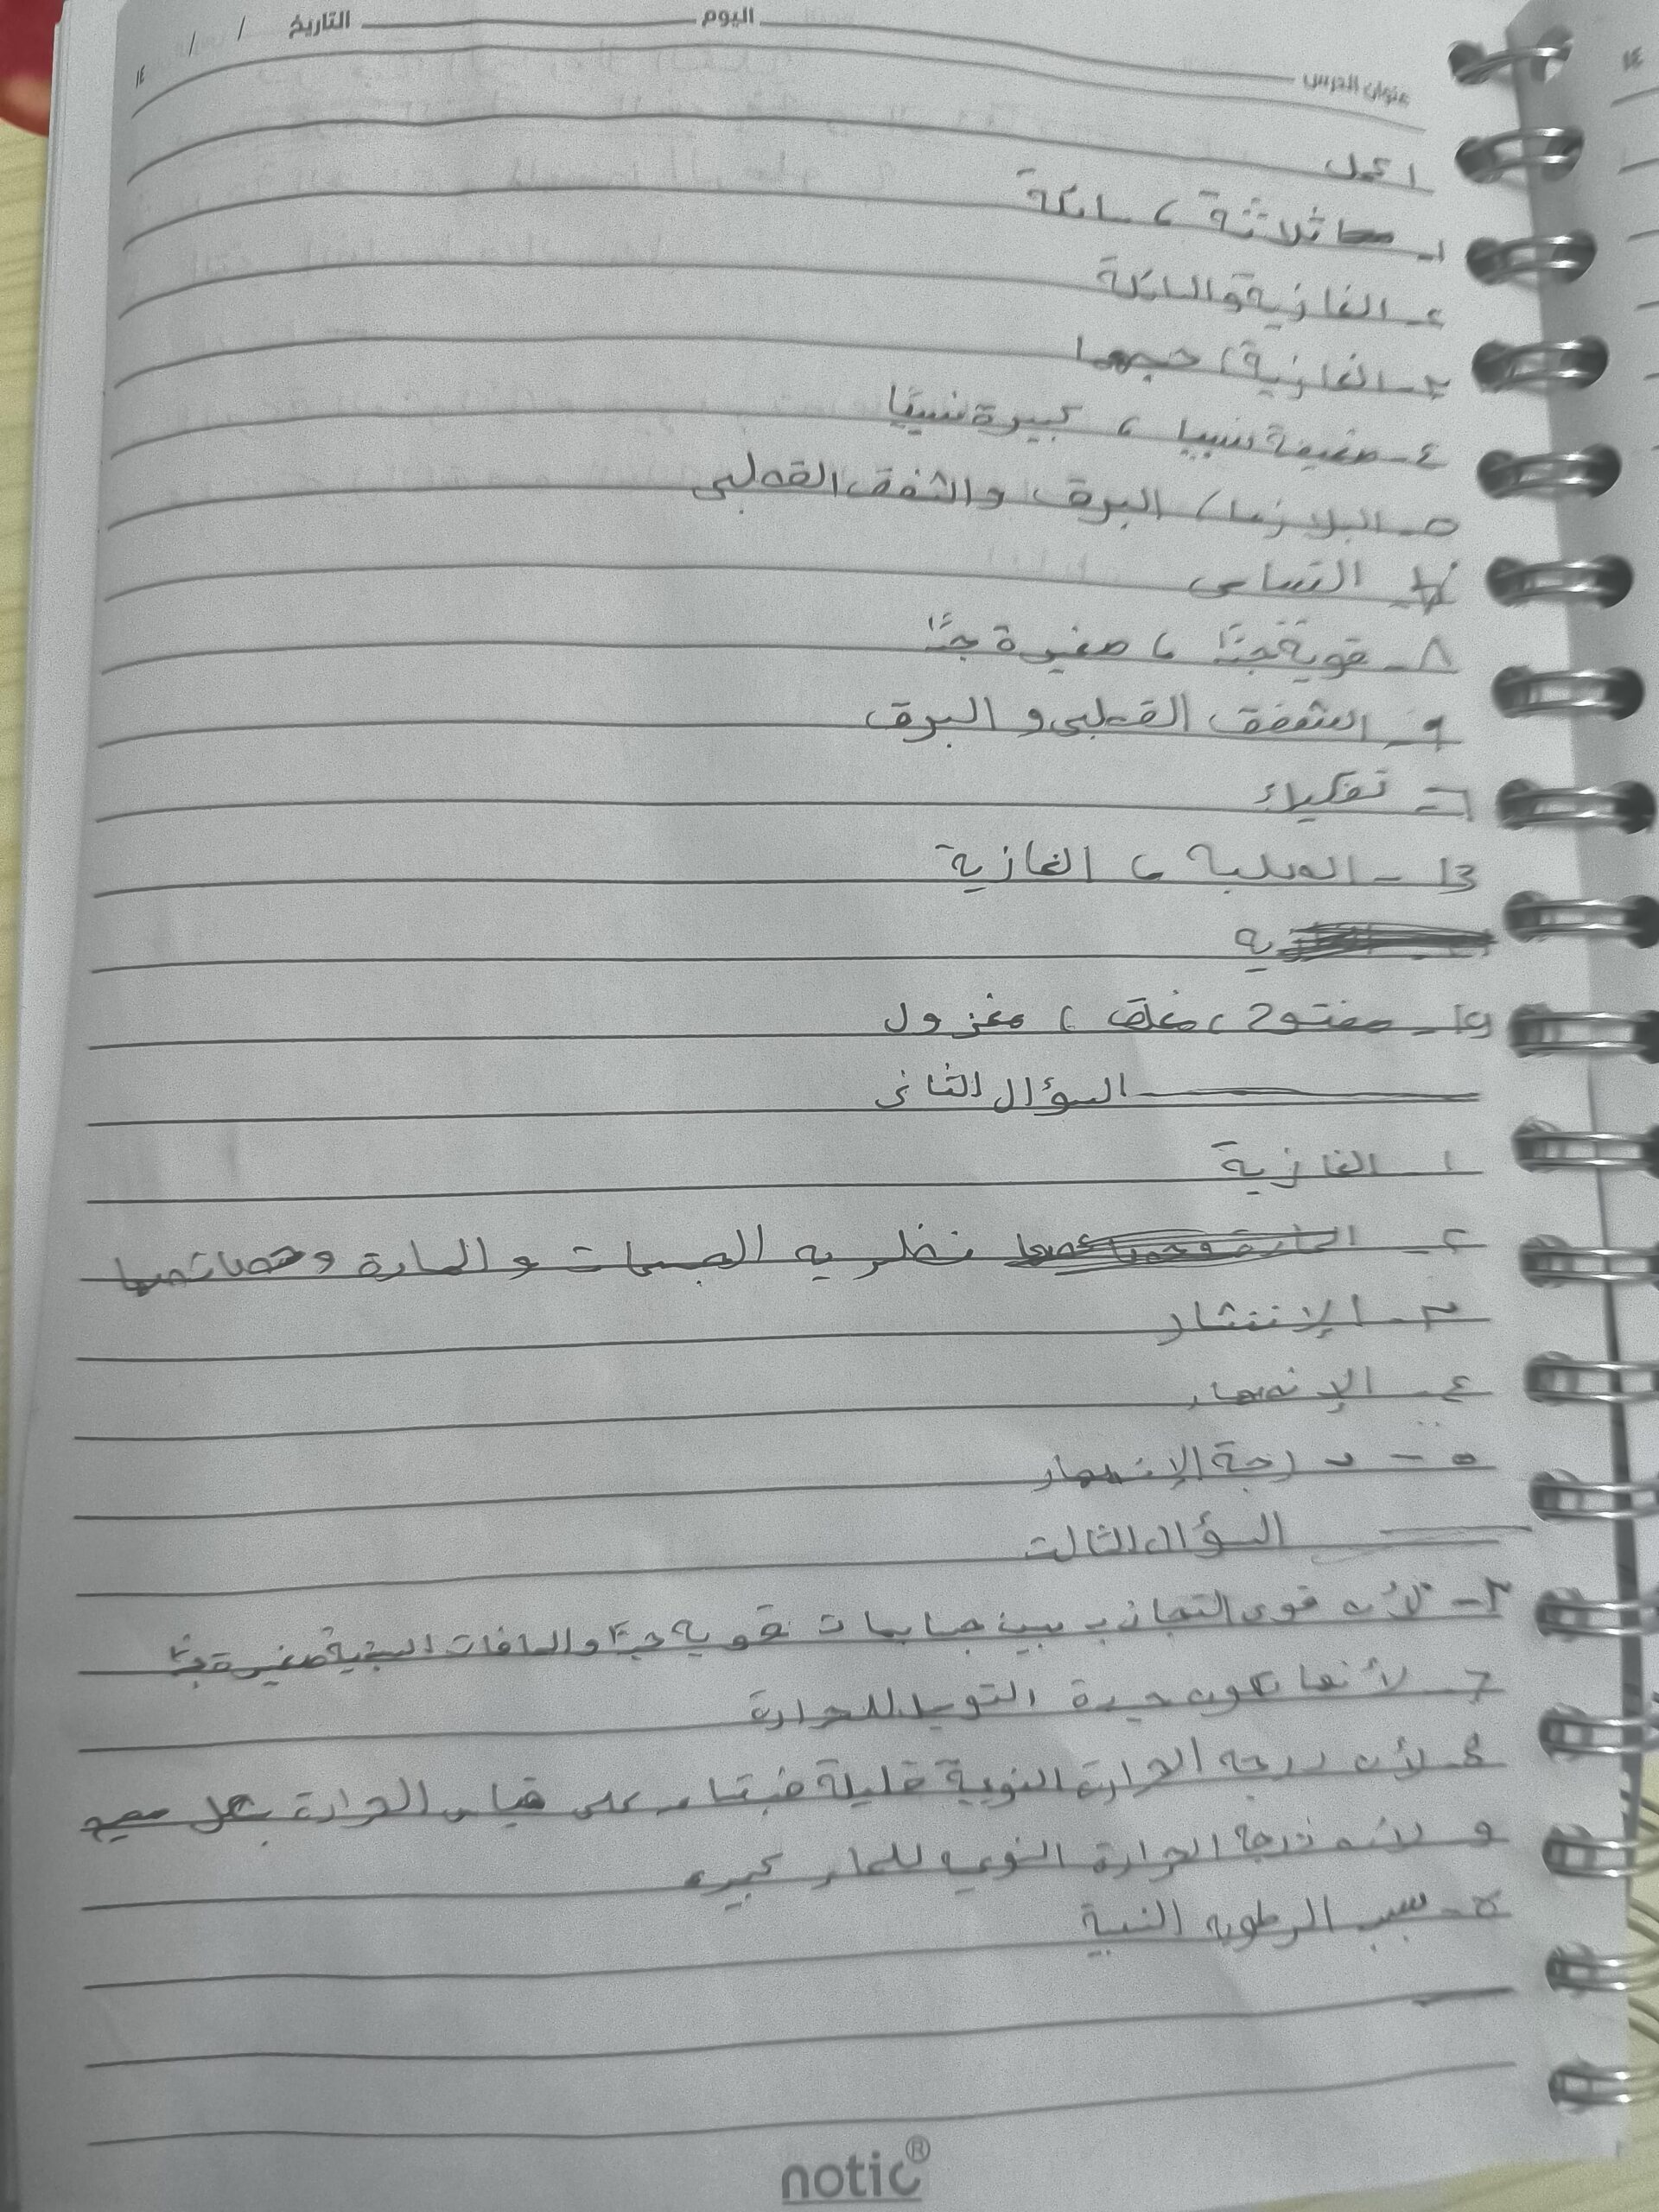 التاريخ / / اليوم
١٤
عنوان الدرس
١٤
اكمل
١- ثلاثة ، سائلة
٢- الغازية والسائلة
٣- الغازية ، حجمها
٤- ضعيفة نسبيا ، كبيرة نسبيًا
٥- البلازما ، البرق والشفق القطبى
التسامى
٨- قوية جدًا ، صغيرة جدًا
٩- الشفق القطبى و البرق
٦-
13 - الصلبة ، الغازية
يه
15- مفتوح ، مغلق ، معزول
السؤال الثانى
١- الغازية
٢- نظريه الجسيمات و المادة وخصائصها
٣- الإنتشار
٤- الإنصهار
٥ - درجة الإنصهار
السؤال الثالث
٢- لأن قوى التجاذب بين جسيمات قوية جدًا والمسافات البينية صغيرة جدًا
لأنها تكون جيدة التوصيل للحرارة
لأن درجه الحرارة النوعية قليلة على قياس الحرارة بشكل صحيح
و لأن درجة الحرارة النوعيه للماء كبيره
سبب الرطوبه النسبية
notic®